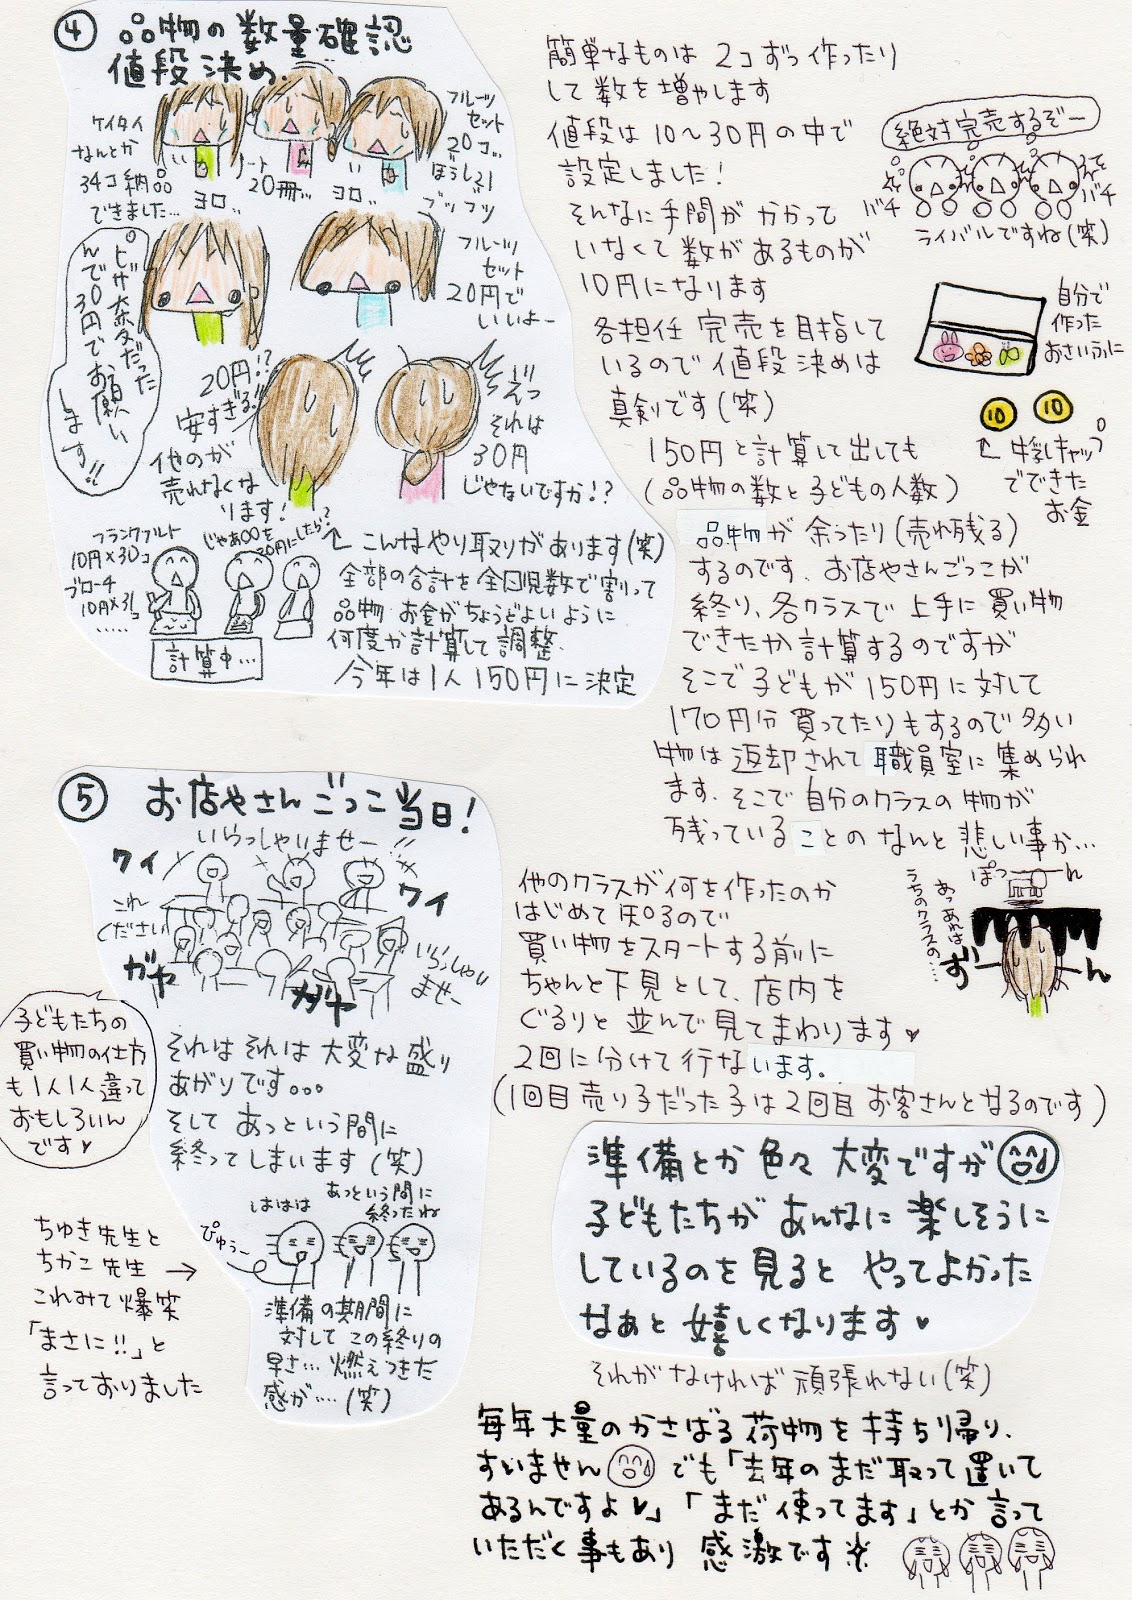 ④ 品物の数量確認
値段決め.
ケイタイ
なんとか
34コ納品
できました…
ヨロ..
ノート
20冊..
ヨロ..
フルーツ
セット
20コ..
ブツブツ
ピザ大変だった
んで30円でお願い
します!!
フルーツ
セット
20円で
いいよー
20円!?
安すぎる!!
他のが
売れなくな
ります!
えっ
それは
30円
じゃないですか!?
フランクフルト
10円×30コ
ブローチ
10円×31コ
.....
じゃあ〇〇を
20円にしたら?
計算中…
こんなやり取りがあります(笑)
全部の合計を全園児数で割って
品物 お金がちょうどよいように
何度か計算して調整.
今年は1人150円に決定
簡単なものは 2コずつ作ったり
して数を増やします
値段は10〜30円の中で
設定しました!
そんなに手間がかかって
いなくて数があるものが
10円になります
各担任 完売を目指して
いるので値段決めは
真剣です(笑)
絶対完売するぞー
バチ
バチ
ライバルですね(笑)
自分で
作った
おさいふに
10 10
牛乳キャップ
でできた
お金
150円と計算して出しても
(品物の数と子どもの人数)
品物が余ったり(売れ残る)
するのです、お店やさんごっこが
終り、各クラスで上手に買い物
できたか計算するのですが
そこで子どもが150円に対して
170円分買ってたりもするので多い
物は返却されて職員室に集められ
ます、そこで自分のクラスの物が
残っていることのなんと悲しい事か…
ぽつーん
あっあれは
うちのクラスの…
ずーん
⑤ お店やさんごっこ当日!
いらっしゃいませー!!
ワイ
ワイ
これ
ください
いらっしゃい
ませー
ガヤ
ガヤ
それはそれは大変な盛り
あがりです。。。
そしてあっという間に
終ってしまいます(笑)
子どもたちの
買い物の仕方
も1人1人違って
おもしろいん
です♥
ははは
あっという間に
終ったね
ぴゅぅー
準備の期間に
対してこの終りの
早さ… 燃えつきた
感が….(笑)
ちゆき先生と
ちかこ先生 →
これみて爆笑
「まさに!!」と
言っておりました
他のクラスが何を作ったのか
はじめて知るので
買い物をスタートする前に
ちゃんと下見として、店内を
ぐるりと並んで見てまわります♥
2回に分けて行ないます。
(1回目売り子だった子は2回目お客さんとなるのです)
準備とか色々大変ですが
子どもたちがあんなに楽しそうに
しているのを見るとやってよかった
なぁと嬉しくなります♥
それがなければ頑張れない(笑)
毎年大量のかさばる荷物を持ち帰り、
すいません でも「去年のまだ取って置いて
あるんですよ♥」「まだ使ってます」とか言って
いただく事もあり 感激です☆